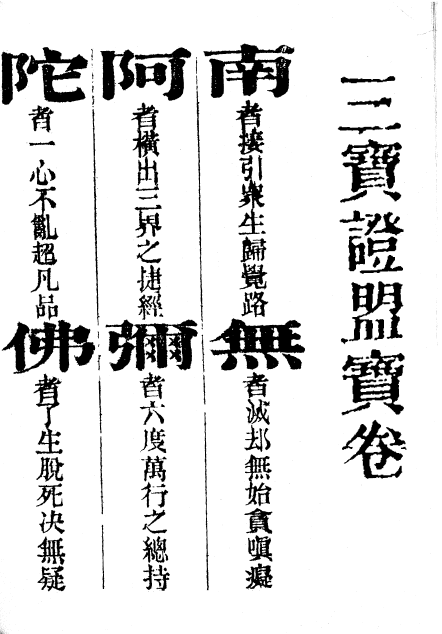 三寶證盟寶卷
南者接引衆生歸覺路
無者滅却無始貪嗔癡
阿者橫出三界之捷經
彌者六度萬行之總持
陀者一心不亂超凡品
佛者了生脫死決無疑